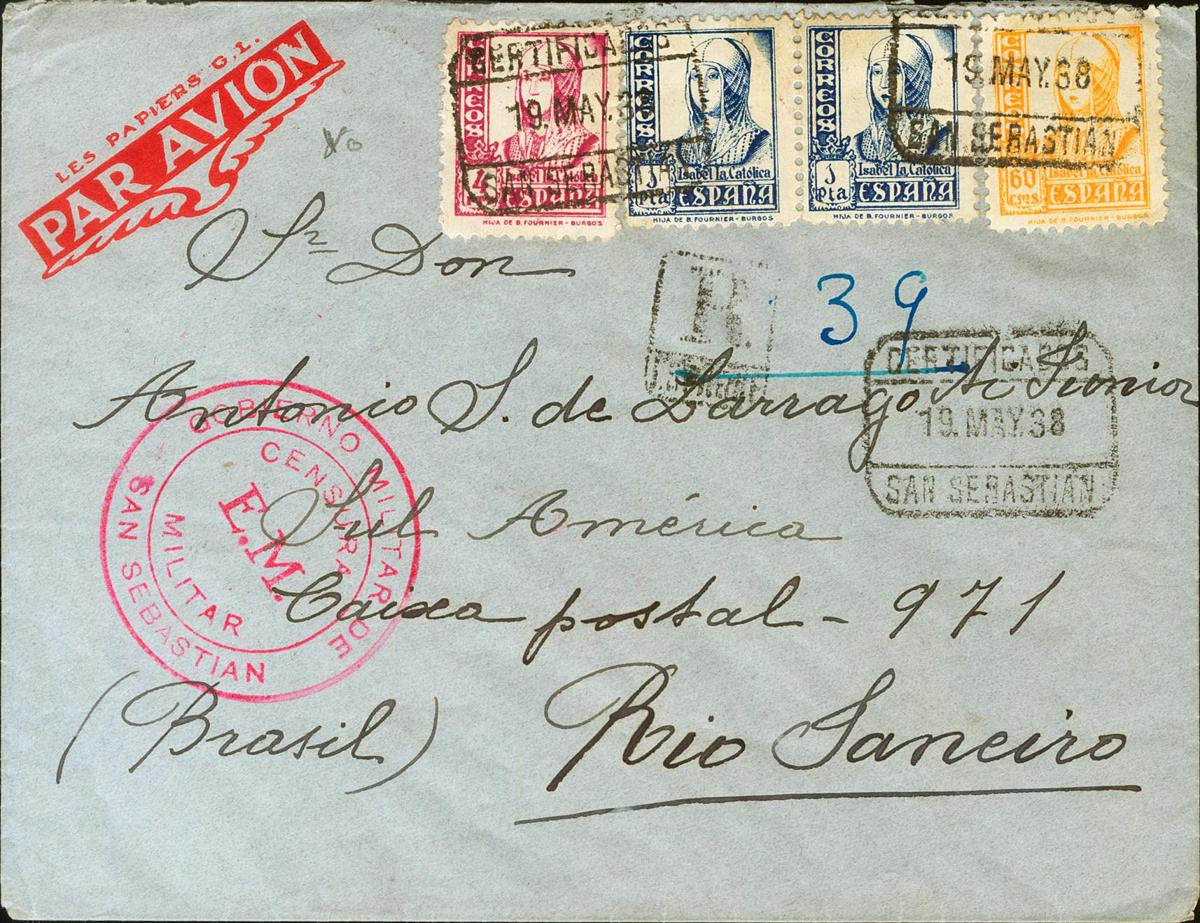 LES PAPIERS G.L.
PAR AVION
CERTIFICADOS
19. MAY. 38
SAN SEBASTIAN
CORREOS
4
Isabel la Católica
ESPAÑA
HIJA DE B. FOURNIER - BURGOS
CORREOS
1 Pta
Isabel la Católica
ESPAÑA
HIJA DE B. FOURNIER - BURGOS
CORREOS
1 Pta
Isabel la Católica
ESPAÑA
HIJA DE B. FOURNIER - BURGOS
19. MAY. 38
SAN SEBASTIAN
CORREOS
60 cms
Isabel la Católica
ESPAÑA
HIJA DE B. FOURNIER - BURGOS
Sr Don
R.
39
CERTIFICADOS
19. MAY. 38
SAN SEBASTIAN
Antonio S. de Larrago Junior
GOBIERNO MILITAR DE
SAN SEBASTIAN
CENSURA
E.M.
MILITAR
Sul América
Caixa postal - 971
(Brasil) Rio Janeiro